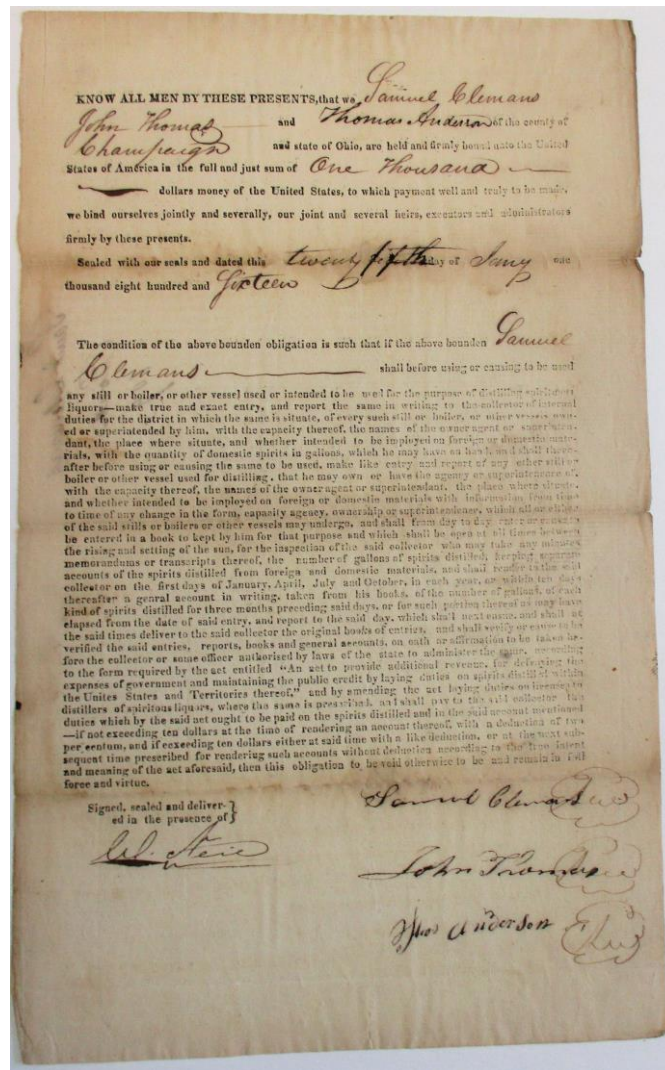 KNOW ALL MEN BY THESE PRESENTS, that we Samuel Clemans
John Thomas and Thomas Anderson of the county of
Champaign and state of Ohio, are held and firmly bound unto the United
States of America in the full and just sum of One Thousand
dollars money of the United States, to which payment well and truly to be made,
we bind ourselves jointly and severally, our joint and several heirs, executors and administrators
firmly by these presents.
Sealed with our seals and dated this twenty fifth day of Jany one
thousand eight hundred and Sixteen
The condition of the above bounden obligation is such that if the above bounden Samuel
Clemans shall before using or causing to be used
any still or boiler, or other vessel used or intended to be used for the purpose of distilling spirituous
liquors—make true and exact entry, and report the same in writing to the collector of internal
duties for the district in which the same is situate, of every such still or boiler, or other vessels own-
ed or superintended by him, with the capacity thereof, the names of the owner agent or superinten-
dant, the place where situate, and whether intended to be imployed on foreign or domestic mate-
rials, with the quantity of domestic spirits in gallons, which he may have on hand, and shall there-
after before using or causing the same to be used, make like entry and report of any other still or
boiler or other vessel used for distilling, that he may own or have the agency or superintendence of,
with the capacity thereof, the names of the owner agent or superintendent, place where situate,
and whether intended to be imployed on foreign or domestic materials with information from time
to time of any change in the form, capacity agency, ownership or superintendence, which all or either
of the said stills or boilers or other vessels may undergo, and shall from day to day enter or cause to
be entered in a book to kept by him for that purpose and which shall be open at all times between
the rising and setting of the sun, for the inspection of the said collector who may take any minutes
memorandums or transcripts thereof, the number of gallons of spirits distilled, keeping separate
accounts of the spirits distilled from foreign and domestic materials, and shall render to the said
collector on the first days of January, April, July and October, in each year, or within ten days
thereafter a genral account in writing, taken from his books, of the number of gallons, of each
kind of spirits distilled for three months preceding said days, or for such portion thereof as may have
elapsed from the date of said entry, and report to the said day, which shall next ensue, and shall at
the said times deliver to the said collector the original books of entries, and shall verify or cause to be
verified the said entries, reports, books and general accounts, on oath or affirmation to be taken be-
fore the collector or some officer authorised by laws of the state to administer the same, according
to the form required by the act entitled "An act to provide additional revenue, for defraying the
expenses of government and maintaining the public credit by laying duties on spirits distilled within
the Unites States and Territories thereof," and by amending the act laying duties on licenses to
distillers of spiritous liquors, where the same is prescribed, and shall pay to the said collector the
duties which by the said act ought to be paid on the spirits distilled and in the said account mentioned
—if not exceeding ten dollars at the time of rendering an account thereof, with a deduction of two
per centum, and if exceeding ten dollars either at said time with a like deduction, or at the next sub-
sequent time prescribed for rendering such accounts without deduction according to the true intent
and meaning of the act aforesaid, then this obligation to be void otherwise to be and remain in full
force and virtue.
Signed, sealed and deliver-
ed in the presence of
Samuel Clemans
John Thomas
Thos Anderson